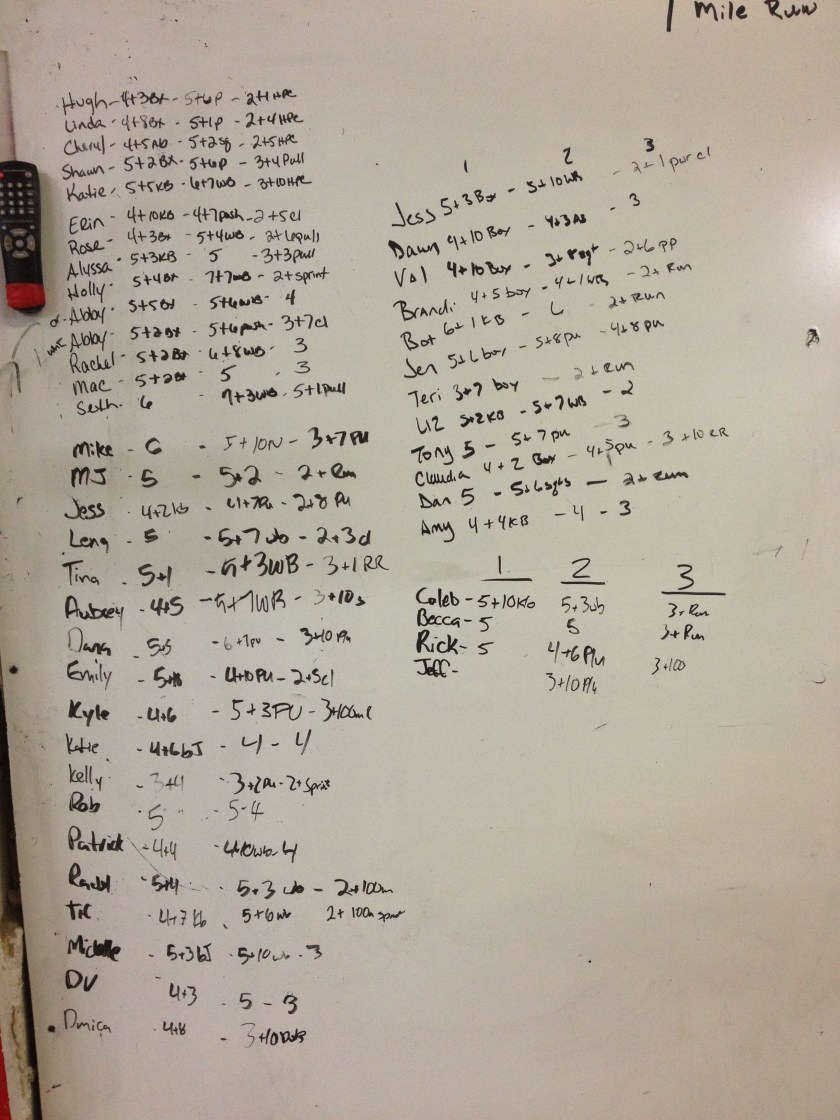 1 Mile Run
Hugh - 4+3Bx - 5+6P - 2+1HPC
Linda - 4+8Bx - 5+1P - 2+4HPC
Cheryl - 4+5Ab - 5+2sq - 2+5HPC
Shawn - 5+2Bx - 5+6P - 3+4Pull
Katie - 5+5KB - 6+7WB - 3+10HPC
Erin - 4+10KB - 4+7push - 2+5cl
Rose - 4+3Bx - 5+4WB - 2+6pull
Alyssa - 5+3KB - 5 - 3+3pull
Holly - 5+4Bx - 7+7WB - 2+sprint
Abby - 5+5Bx - 5+6WB - 4
Abby - 5+2Bx - 5+6push - 3+7cl
Rachel - 5+2Bx - 6+8WB - 3
Mac - 5+2Bx - 5 - 3
Seth - 6 - 7+3WB - 5+1Pull
Mike - 6 - 5+10 - 3+7PU
MJ - 5 - 5+2 - 2+Run
Jess - 4+2kb - 4+7Pu - 2+8Pu
Lena - 5 - 5+7wb - 2+3cl
Tina - 5+1 - 5+3WB - 3+1RR
Aubrey - 4+5 - 5+7WB - 3+10s
Dana - 5+5 - 6+7pu - 3+10Pu
Emily - 4+10PU - 2+5cl
Kyle - 4+6 - 5+3PU - 3+100m
Katie - 4+6bJ - 4 - 4
Kelly - 3+4 - 3+2Pu - 2+Sprint
Rob - 5 - 5-4
Patrick - 4+4 - 4+10wb - 4
Rachel - 5+4 - 5+3wb - 2+100m
4+7kb - 5+6wb 2+100m sprint
Michelle - 5+3bJ - 5+10wb - 3
DV 4+3 - 5 - 3
4+8 - 3+10
1 2 3
Jess 5+3Box - 5+10WB - 2+1 pwr cl
Dawn 4+10Box - 4+3 - 3
Val 4+10Box - 3+8sqt - 2+6pp
Brandi 4+5box - 4+1WB - 2+Run
Bot 6+1KB - 6 - 2+Run
Jen 5+6box - 5+8pu - 4+8pu
Teri 3+7box - 2+Run
Liz 5+2KB - 5+7WB - 2
Tony 5 - 5+7pu - 3
Claudia 4+2Box - 4+5pu - 3+10RR
Dan 5 - 5+6sqts - 2+Run
Amy 4+4KB - 4 - 3
1 2 3
Caleb - 5+10Kb 5+3wb 3+Run
Becca - 5 5 3+Run
Rick - 5 4+6P/u 3+100
Jeff - 3+10P/u